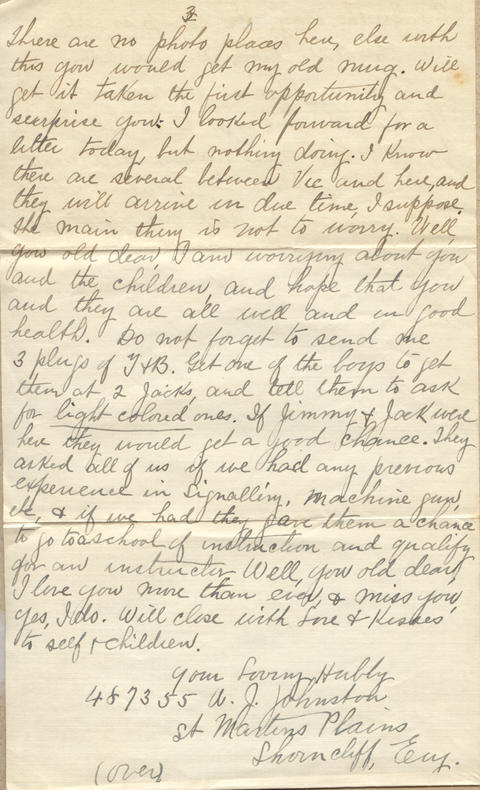 3
There are no photo places here, else with
this you would get my old mug. Will
get it taken the first opportunity and
seerprise you: I looked forward for a
letter today, but nothing doing. I know
there are several between Vic and here, and
they will arrive in due time, I suppose.
The main thing is not to worry. Well,
you old dear, I am worrying about you
and the children, and hope that you
and they are all well and in good
health. Do not forget to send me
3 plugs of T&B. Get one of the boys to get
them at 2 Jacks, and tell them to ask
for light colored ones. If Jimmy & Jack were
here they would get a good chance. They
asked all of us if we had any previous
experience in Signalling, machine gun,
etc, & if we had they gave them a chance
to go to a school of instruction and qualify
for an instructor. Well, you old dear,
I love you more than ever, & miss you,
yes, I do. Will close with Love & Kisses
to self & children.
Your Loving Hubby
487355 W. J. Johnston
St Martins Plains
Shorncliff, Eng.
(over)